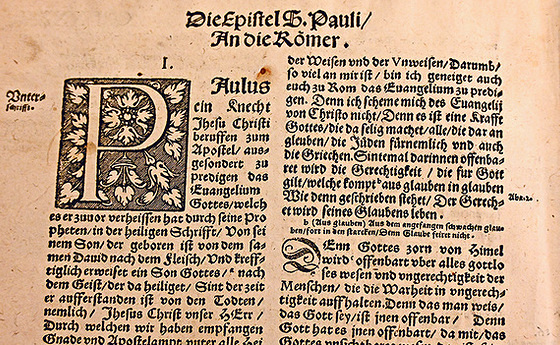 Die Epistel S. Pauli/
An die Römer.
I.
Vnter-
schrifft.
PAulus
ein Knecht
Jhesu Christi
beruffen zum
Apostel/ aus-
gesondert zu
predigen das
Euangelium
Gottes/welch
es er zuuor verheissen hat durch seine Pro
pheten/in der heiligen Schrifft/ Von sei
nem Son/ der geboren ist von dem sa-
men Dauid nach dem Fleisch/ Vnd kreff-
tiglich erweiset ein Son Gottes/ nach
dem Geist/ der da heiliget/ Sint der zeit
er aufferstanden ist von den Todten/
nemlich/ Jhesus Christ vnser HErr/
Durch welchen wir haben empfangen
Gnade vnd Apostelampt vnter alle Hei
der Weisen vnd der Vnweisen/Darumb/
so viel an mir ist/ bin ich geneiget auch
euch zu Rom das Euangelium zu predi-
gen. Denn ich scheme mich des Euangelij
von Christo nicht/ Denn es ist eine Krafft
Gottes/die da selig machet/alle/die dar an
gleuben/ die Jüden fürnemlich vnd auch
die Griechen. Sintemal darinnen offenba-
ret wird die Gerechtigkeit / die fur Gott
gilt/welche kompt aus glauben in glauben
Wie denn geschrieben stehet/ Der Gerech-
et wird seines Glaubens leben.
Abac. 2.
b (Aus glauben) Aus dem angefangen schwachen glau
ben/fort in den starcken/Denn Glaube feiret nicht.
DEnn Gottes zorn von Himel
wird offenbart vber alles gottlo
ses wesen vnd vngerechtigkeit der
Menschen/ die die Warheit in vngerech-
tigkeit auffhalten. Denn das man weis/
das Gott sey/ist jnen offenbar/ Denn
Gott hat es jnen offenbart/ da mit/das